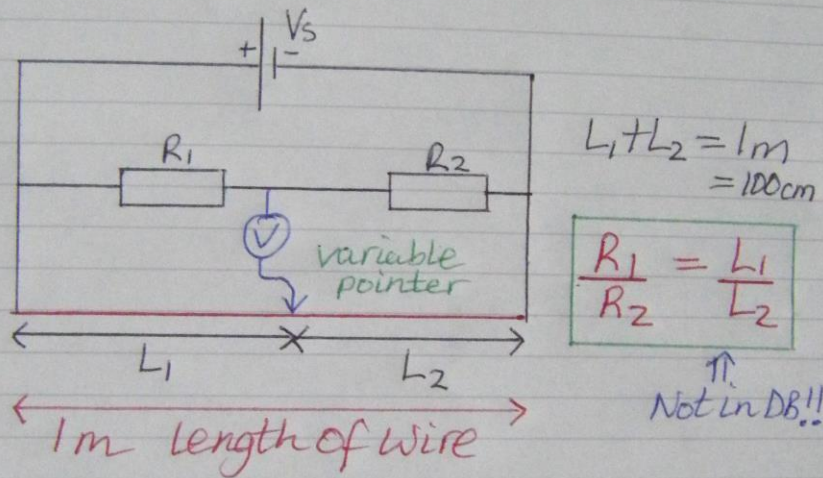 Vs
+ -
R₁
R₂
V
variable
pointer
L₁
L₂
1m length of wire
L₁+L₂ = 1m
= 100cm
R₁/R₂ = L₁/L₂
⇑
Not in DB!!